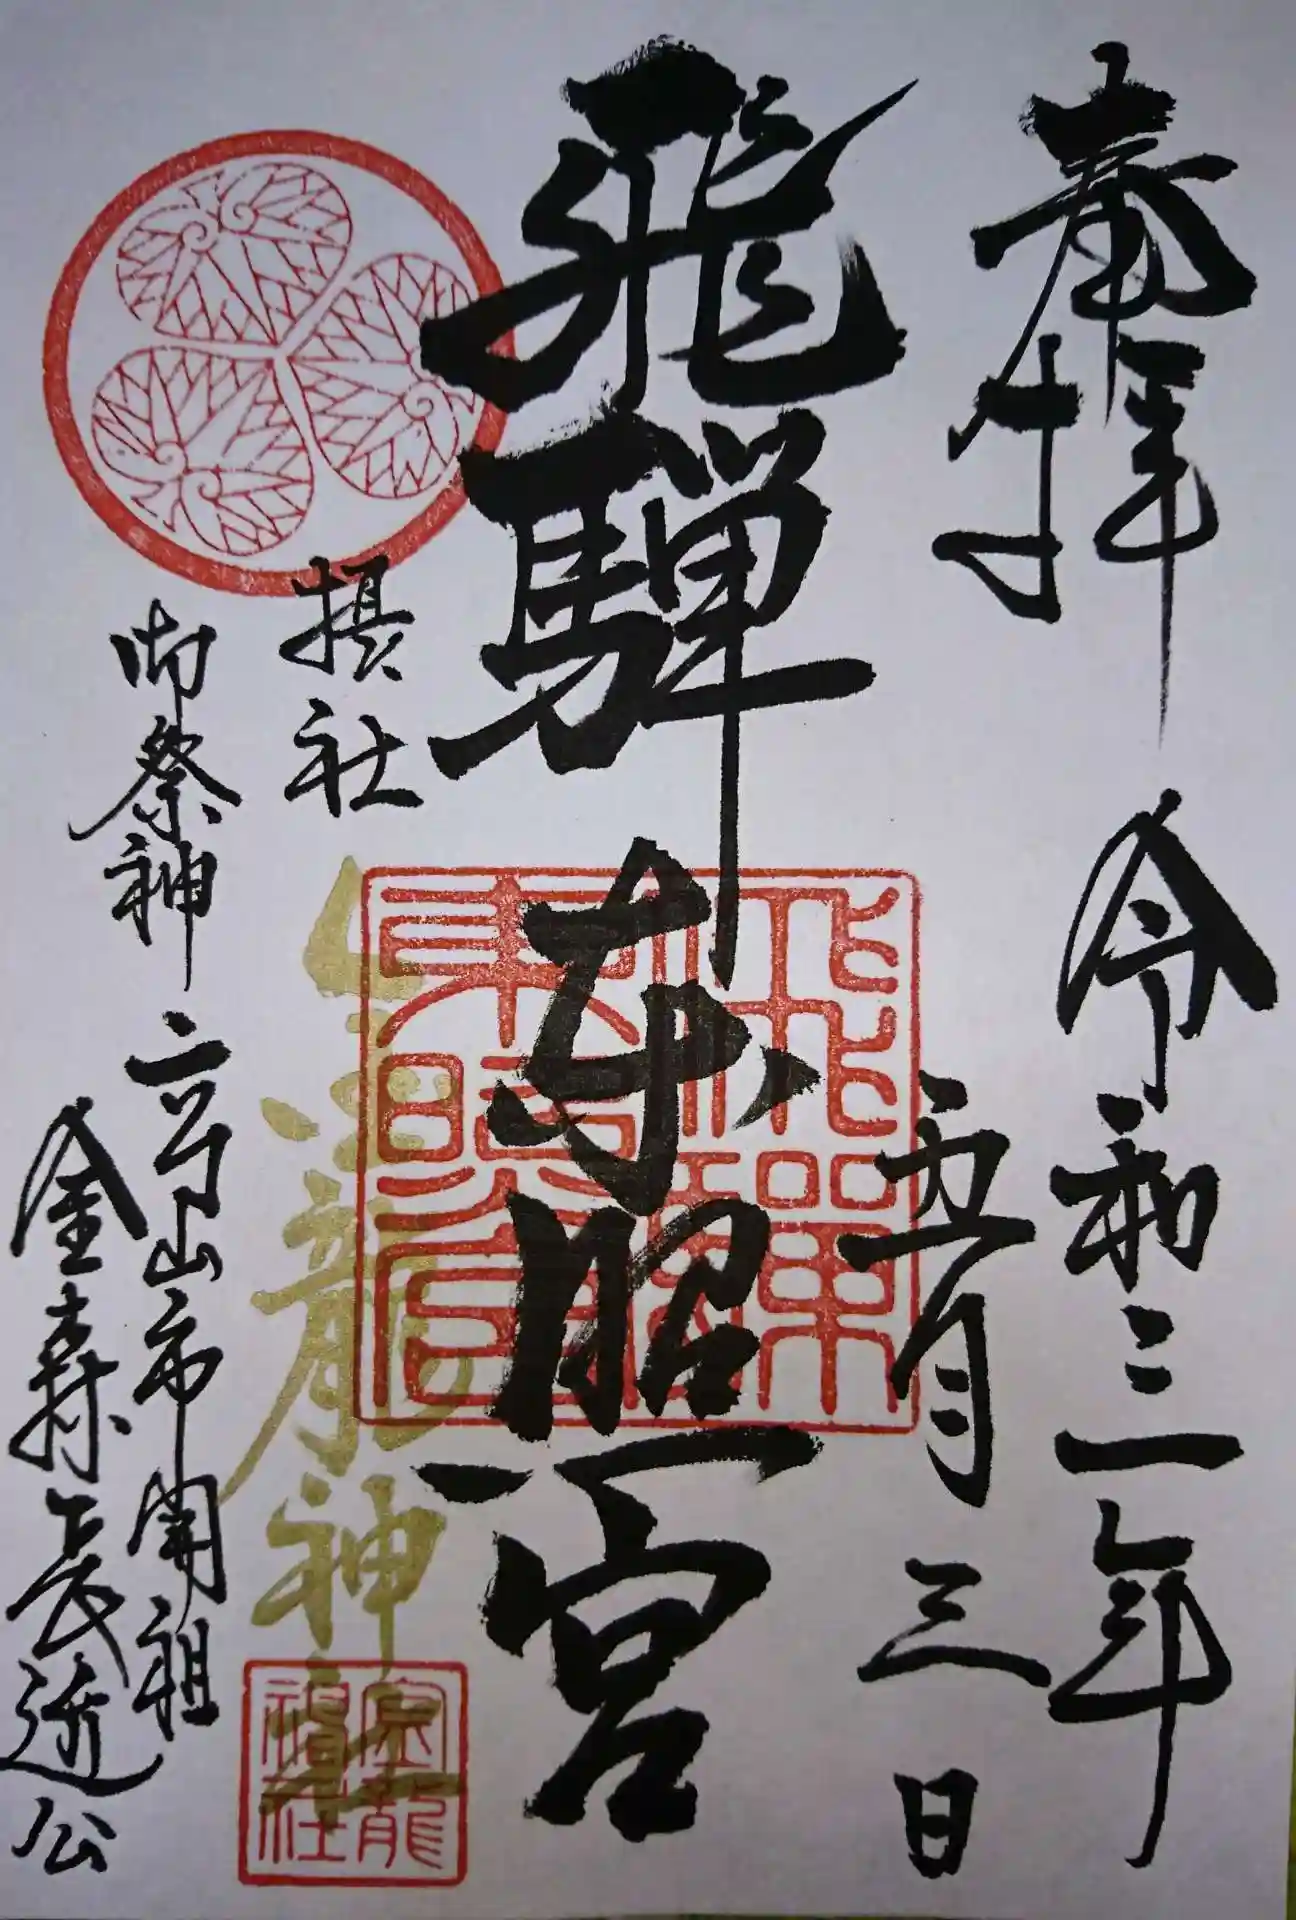 奉拝
令和三年
五月三日
飛騨東照宮
飛騨
東照宮
摂社
金龍神社
金龍
神社
御祭神
高山市開祖
金森長近公